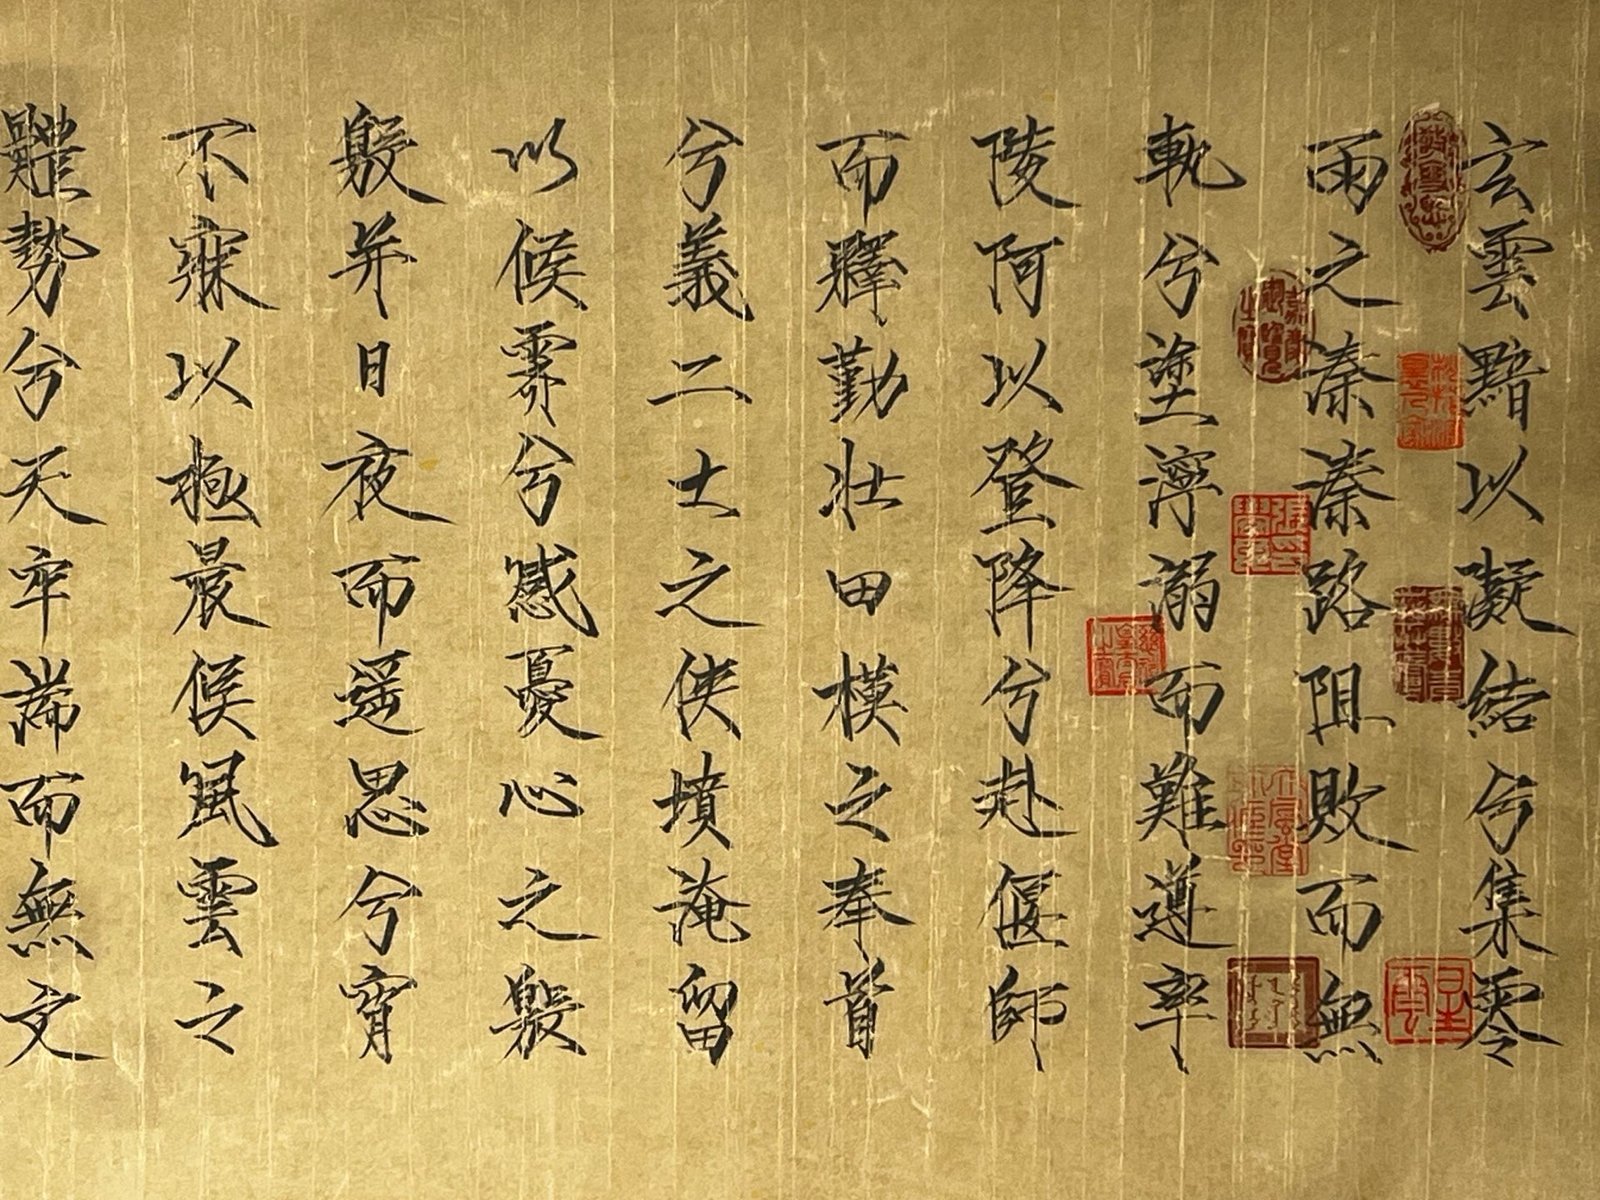 玄雲黯以凝結兮集零
雨之溱溱路阻敗而無
軌兮塗濘溺而難遵率
陵阿以登降兮赴偃師
而釋勤壯田模之奉首
兮義二士之俠墳淹留
以候霽兮感憂心之殷
殷并日夜而遥思兮宵
不寐以極晨候風雲之
體勢兮天牢湍而無文